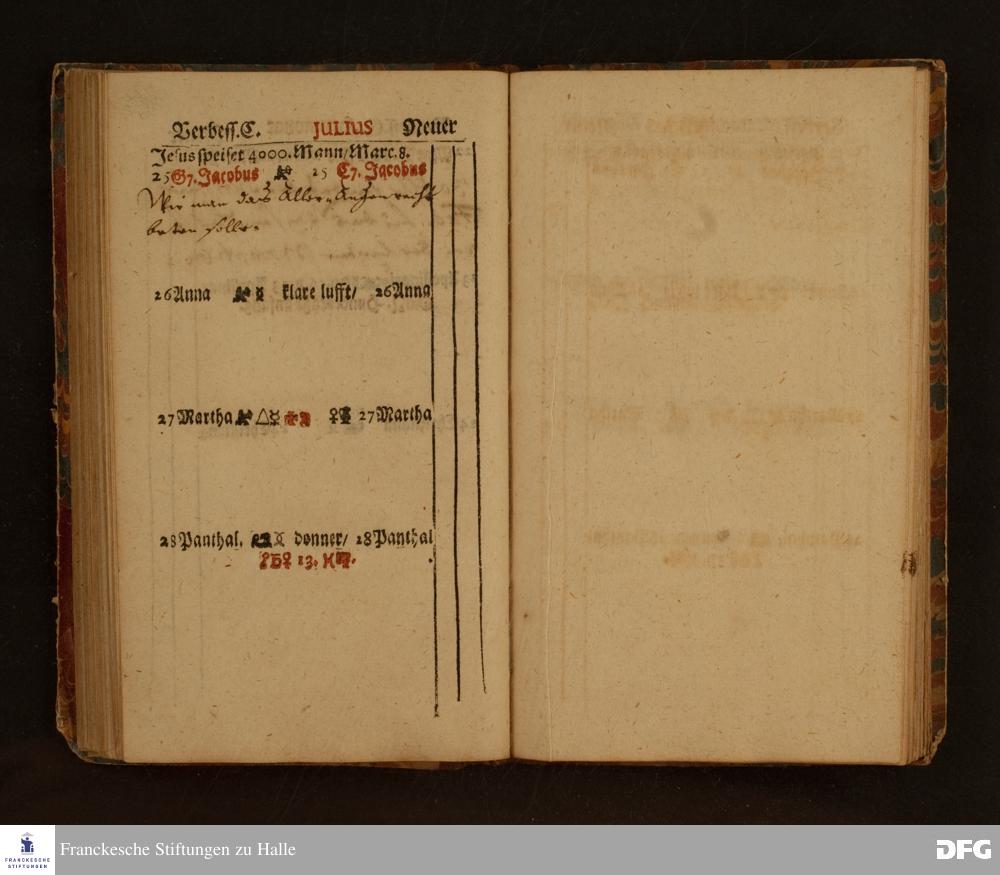 Verbess. C. JULIUS Neuer
Jesus speiset 4000. Mann/ Marc. 8.
25 G7. Jacobus 25 C7. Jacobus
Wie man das Aller Augen recht
beten solle.
26 Anna ☿ klare lufft/ 26 Anna
27 Martha △☿ ♀ 27 Martha
28 Panthal. donner/ 28 Panthal
13.
Franckesche Stiftungen zu Halle
FRANCKESCHE
STIFTUNGEN
DFG